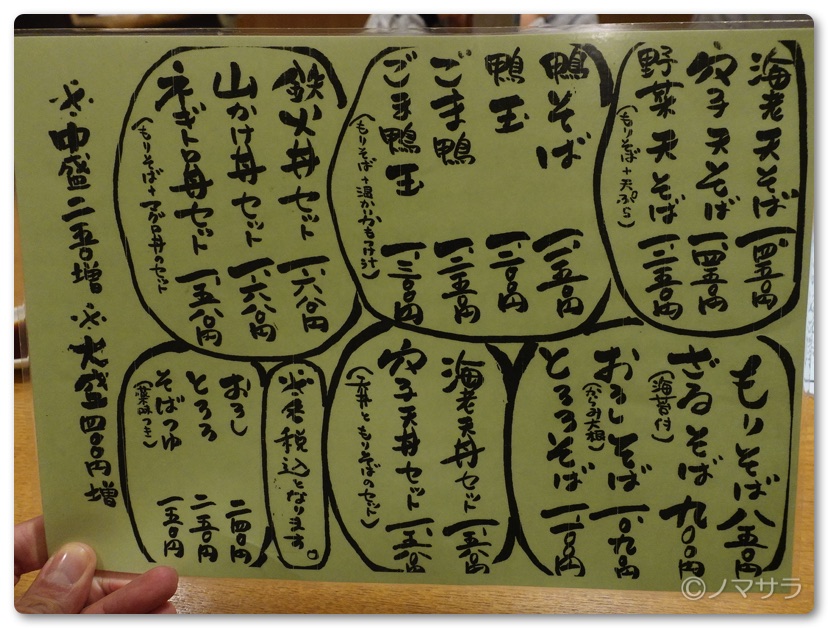 海老天そば 一、四五〇円
穴子天そば 一、四五〇円
野菜天そば 一、二五〇円
(もりそば+天ぷら)
鴨そば 一、一五〇円
鴨玉 一、二〇〇円
ごま鴨 一、二五〇円
ごま鴨玉 一、三〇〇円
(もりそば+温かかもつけ汁)
鉄火丼セット 一、六八〇円
山かけ丼セット 一、六八〇円
ネギトロ丼セット 一、五八〇円
(もりそば+マグロ丼のセット)
もりそば 八五〇円
ざるそば 九〇〇円
(海苔付)
おろしそば 一、〇九〇円
(からみ大根)
とろろそば 一、一〇〇円
海老天丼セット
穴子天丼セット
(天丼ともりそばのセット)
※各税込となります。
おろし 二四〇円
とろろ 二五〇円
そばつゆ 一五〇円
(薬味つき)
※中盛二五〇増 ※大盛四〇〇円増
©ノマサラ